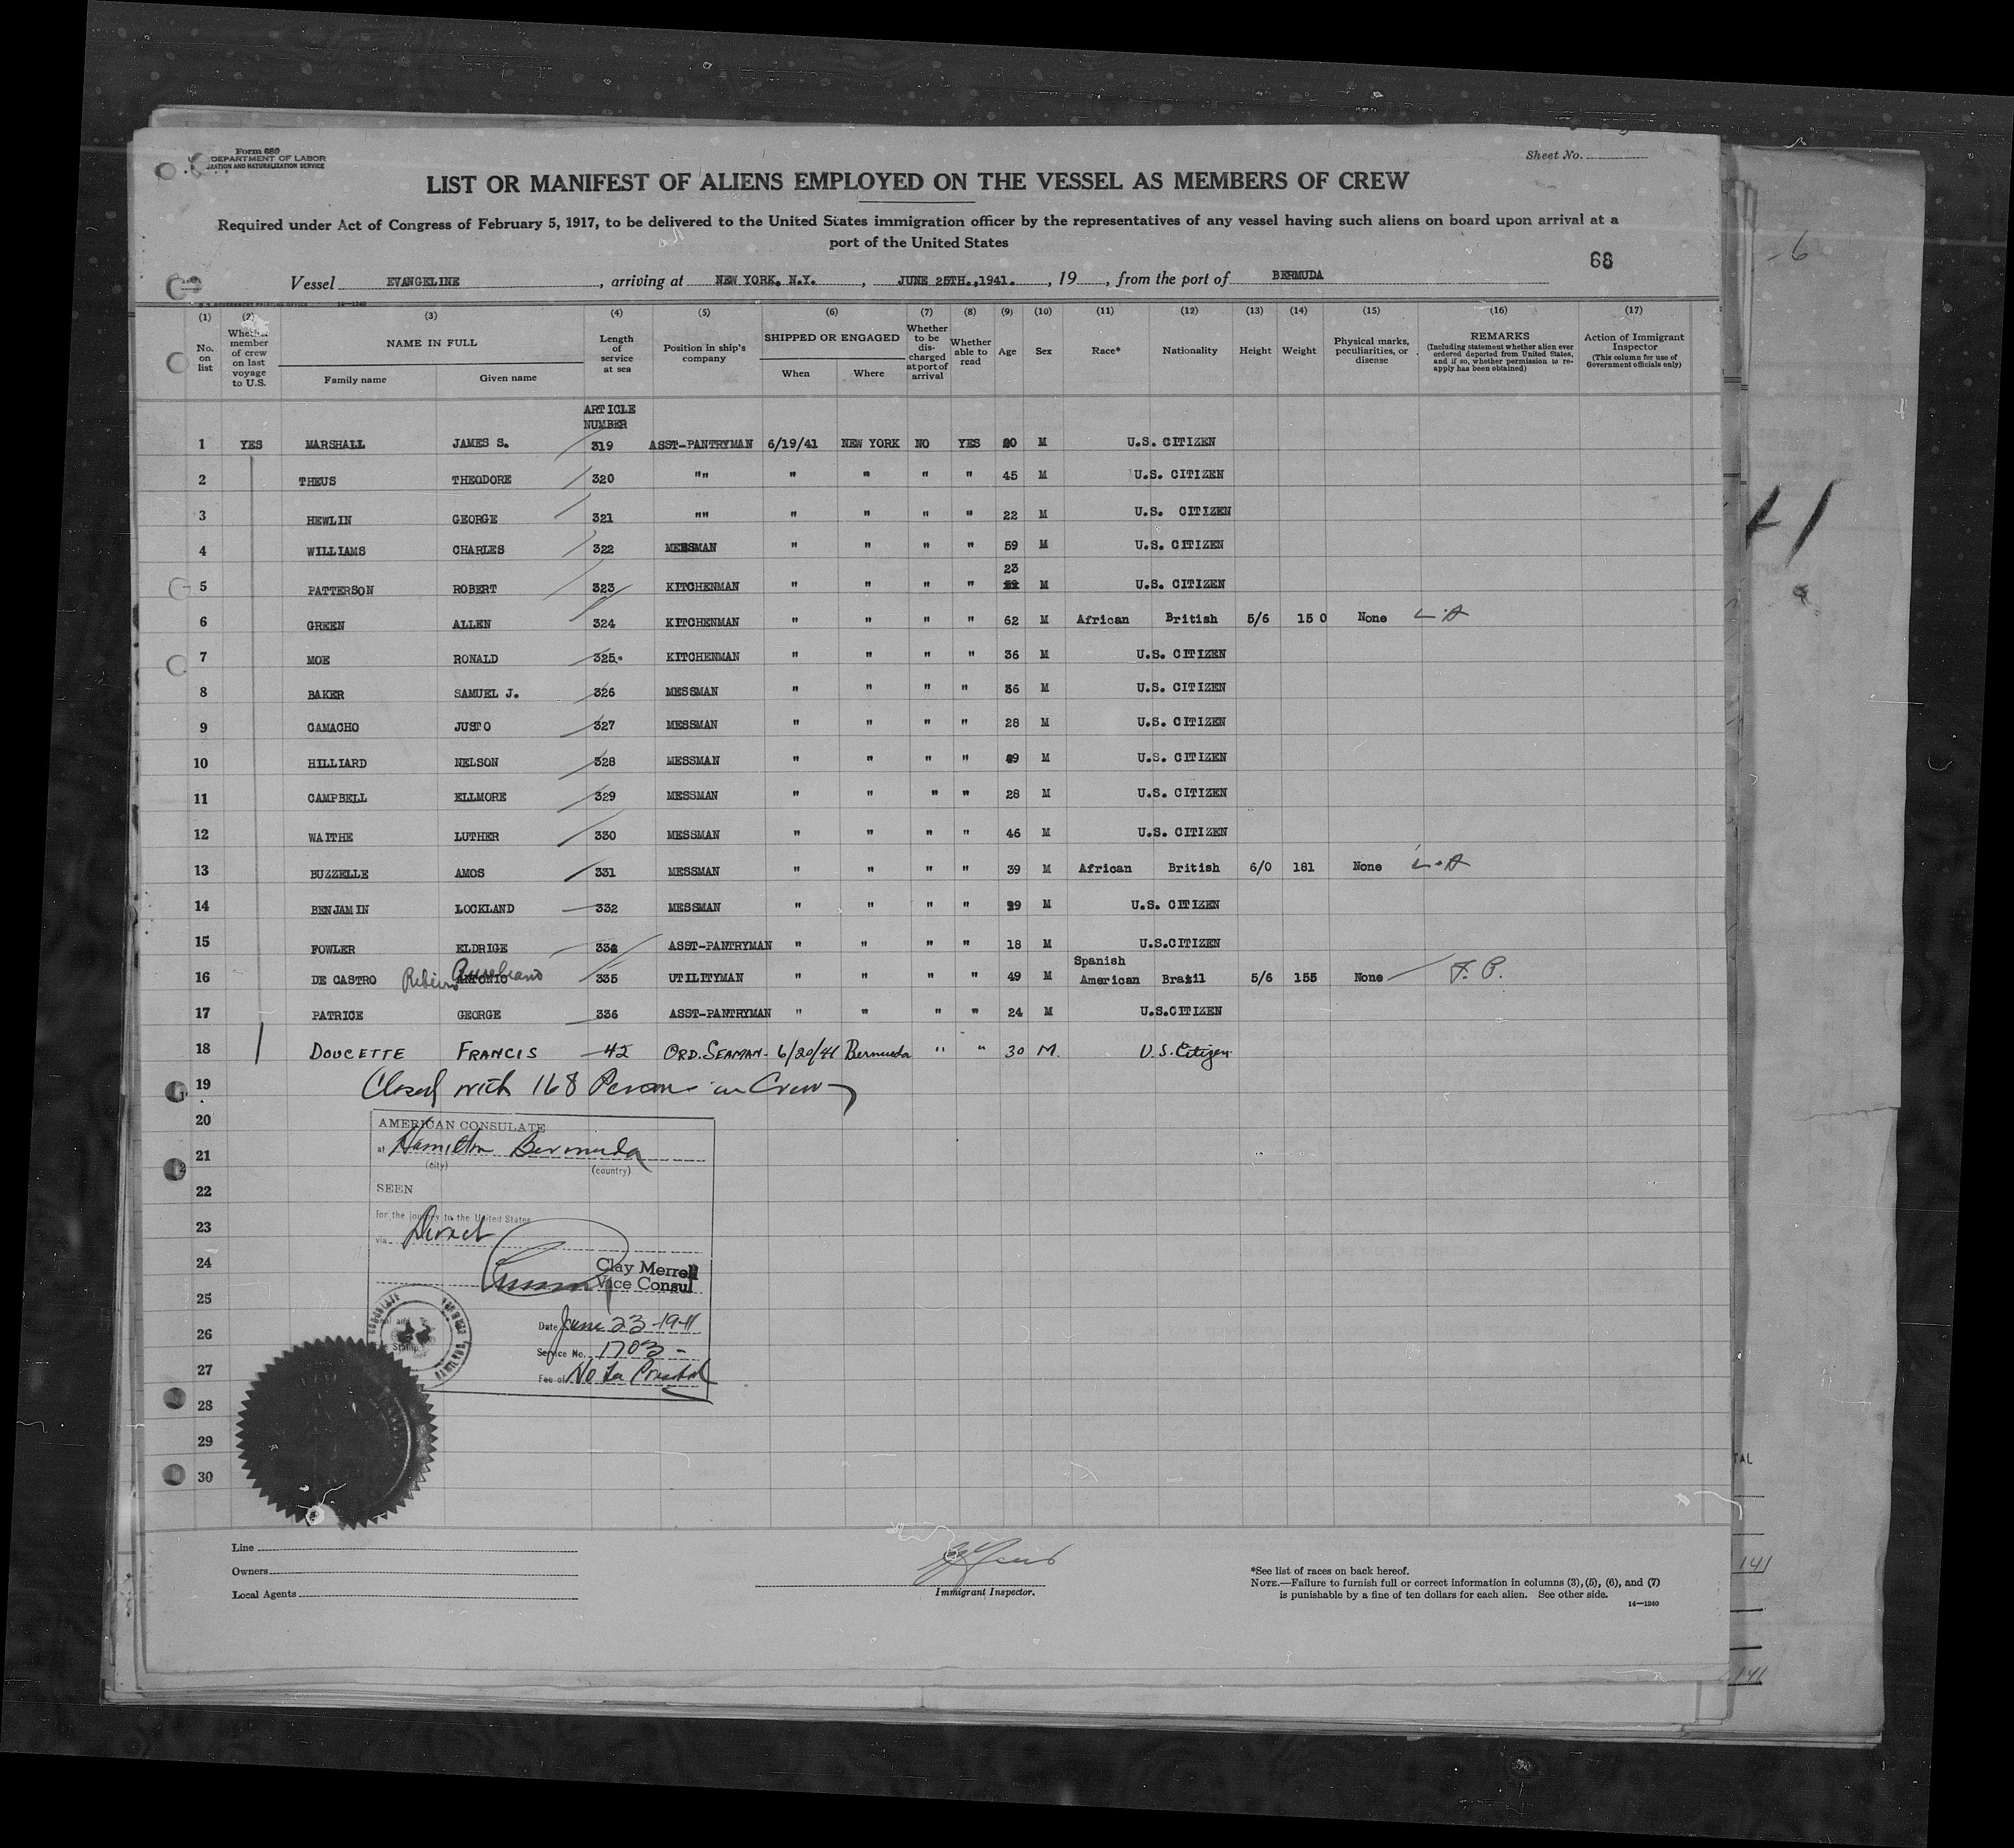 Form 680
DEPARTMENT OF LABOR
ATION AND NATURALIZATION SERVICE
Sheet No.
LIST OR MANIFEST OF ALIENS EMPLOYED ON THE VESSEL AS MEMBERS OF CREW
Required under Act of Congress of February 5, 1917, to be delivered to the United States immigration officer by the representatives of any vessel having such aliens on board upon arrival at a
port of the United States
68
Vessel EVANGELINE, arriving at NEW YORK. N.Y., JUNE 25TH.,1941., 19, from the port of BERMUDA
(1) (2) (3) (4) (5) (6) (7) (8) (9) (10) (11) (12) (13) (14) (15) (16) (17)
No. on list
Whether member of crew on last voyage to U.S.
NAME IN FULL
Family name Given name
Length of service at sea
Position in ship's company
SHIPPED OR ENGAGED
When Where
Whether to be discharged at port of arrival
Whether able to read
Age Sex Race* Nationality Height Weight
Physical marks, peculiarities, or disease
REMARKS
(Including statement whether alien ever ordered deported from United States, and if so, whether permission to re-apply has been obtained)
Action of Immigrant Inspector
(This column for use of Government officials only)
ARTICLE
NUMBER
1 YES MARSHALL JAMES S. 319 ASST-PANTRYMAN 6/19/41 NEW YORK NO YES 20 M U.S. CITIZEN
2 THEUS THEODORE 320 "" " " " " 45 M U.S. CITIZEN
3 HEWLIN GEORGE 321 "" " " " " 22 M U.S. CITIZEN
4 WILLIAMS CHARLES 322 MESSMAN " " " " 59 M U.S. CITIZEN
23
5 PATTERSON ROBERT 323 KITCHENMAN " " " " M U.S. CITIZEN
6 GREEN ALLEN 324 KITCHENMAN " " " " 62 M African British 5/6 15 0 None L.A
7 MOE RONALD 325. KITCHENMAN " " " " 36 M U.S. CITIZEN
8 BAKER SAMUEL J. 326 MESSMAN " " " " 36 M U.S. CITIZEN
9 CAMACHO JUSTO 327 MESSMAN " " " " 28 M U.S. CITIZEN
10 HILLIARD NELSON 328 MESSMAN " " " " M U.S. CITIZEN
11 CAMPBELL ELLMORE 329 MESSMAN " " " " 28 M U.S. CITIZEN
12 WAITHE LUTHER 330 MESSMAN " " " " 46 M U.S. CITIZEN
13 BUZZELLE AMOS 331 MESSMAN " " " " 39 M African British 6/0 181 None L.A
14 BENJAMIN LOCKLAND 332 MESSMAN " " " " M U.S. CITIZEN
15 FOWLER ELDRIGE ASST-PANTRYMAN " " " " 18 M U.S.CITIZEN
Spanish
16 DE CASTRO ANTONIO 335 UTILITYMAN " " " " 49 M American Brazil 5/6 155 None F. P.
17 PATRICE GEORGE 336 ASST-PANTRYMAN " " " " 24 M U.S.CITIZEN
18 DOUCETTE FRANCIS 42 ORD. SEAMAN- 6/20/41 Bermuda " " 30 M. U.S. Citizen
19 Closed with 168 Persons in Crew
20
21
22
23
24
25
26
27
28
29
30
AMERICAN CONSULATE
at Hamilton Bermuda
(city) (country)
SEEN
for the journey to the United States
via Direct
Clay Merrell
Vice Consul
Date June 23 1941
Service No. 1703 -
Fee of No Fee
Line
Owners
Local Agents
Immigrant Inspector.
*See list of races on back hereof.
NOTE.—Failure to furnish full or correct information in columns (3), (5), (6), and (7)
is punishable by a fine of ten dollars for each alien. See other side.
14—1240
TAL
141
141